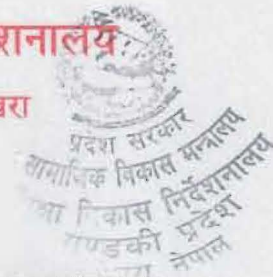 र्देशनालय
खरा
प्रदेश सरकार
सामाजिक विकास मन्त्रालय
विकास निर्देशनालय
गण्डकी प्रदेश
नेपाल